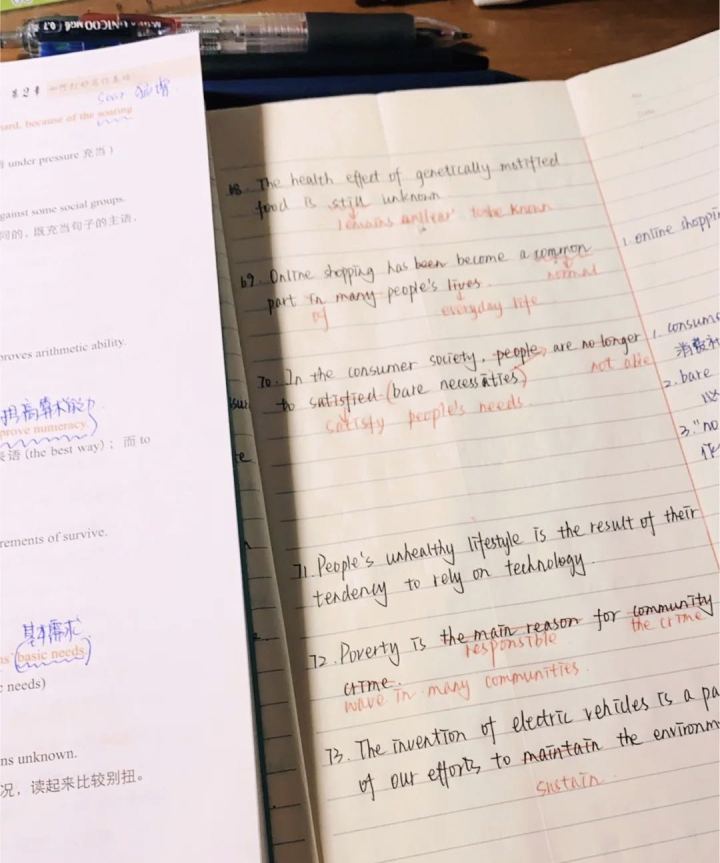 第2章 如何打好写作基础
soar
ard, because of the soaring
under pressure 充当）
gainst some social groups.
同的，既充当句子的主语，
proves arithmetic ability.
提高算术能力
prove numeracy.
表语 (the best way)；而 to
rements of survive.
基本需求
basic needs
needs)
ns unknown.
况，读起来比较别扭。
68. The health effect of genetically motified
food is still unknown
remains unclear to be known
69. Online shopping has been become a common
normal
part in many people's lives.
of everyday life
70. In the consumer society, people are no longer
not able
to satisfied (bare necessities)
satisfy people's needs
71. People's unhealthy lifestyle is the result of their
tendency to rely on technology.
72. Poverty is the main reason for community
responsible the crime
crime.
wave in many communities.
73. The invention of electric vehicles is a pa
of our efforts to maintain the environm
sustain.
1. online shoppi
1. consume
消费
2. bare
3. "no